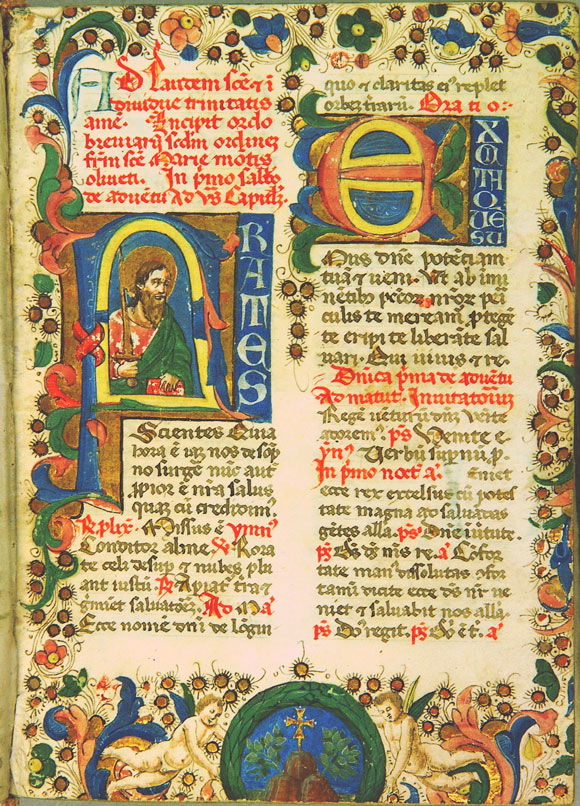 AD Laudem scē & ī
diuidue trinitatis
amē. Incipit ordo
breuiarij scdm ordinē
frm scē Marie mōtis
oliueti. In p̄mo sabb̄o
de aduētu Ad vs̄ Capłm.
FRATRES
Scientes Quia
hora ē iaz nos de sōp
no surgē nūc aut
p̄pior ē n̄ra salus
quaz cū credidim9.
Resplm. Missus ē ymn9
Conditor alme. Rora
te celi desup & nubes plu
ant iustū. Apiat tra &
gm̄iet saluatorē. Ad Ma
Ecce nomē dn̄i de lōgin
quo & claritas ei9 replet
orbez trarū. Oratio:
EXCITA QUESU
mus dn̄e potētiam
tuā & veni. Vt ab imi
nētibo pctor̄ nror̄ peri
culis te meream̄ p̄tegē
te eripi te liberāte sal
uari. Qui uiuis & re.
Dn̄ica p̄ma de aduētu
Ad matut. Inuitatoriū
Regē uēturū dn̄m Venite
adorem9. ps̄ Venite e.
yn9 Verbū supnū p.
In p̄mo noct̄ a. Eniet
ecce rex excelsus cū potes
tate magna ad saluādas
gētes alla. ps̄ Dn̄e ī uirtute.
ps̄ Ds̄ ds̄ ms re. a Cōfor
tate man9 dissolutas cōfor
tamī dicite ecce ds̄ nr̄ ue
niet & saluabit nos alla.
ps̄ Dn̄s regit. ps̄ Dn̄i ē t. a